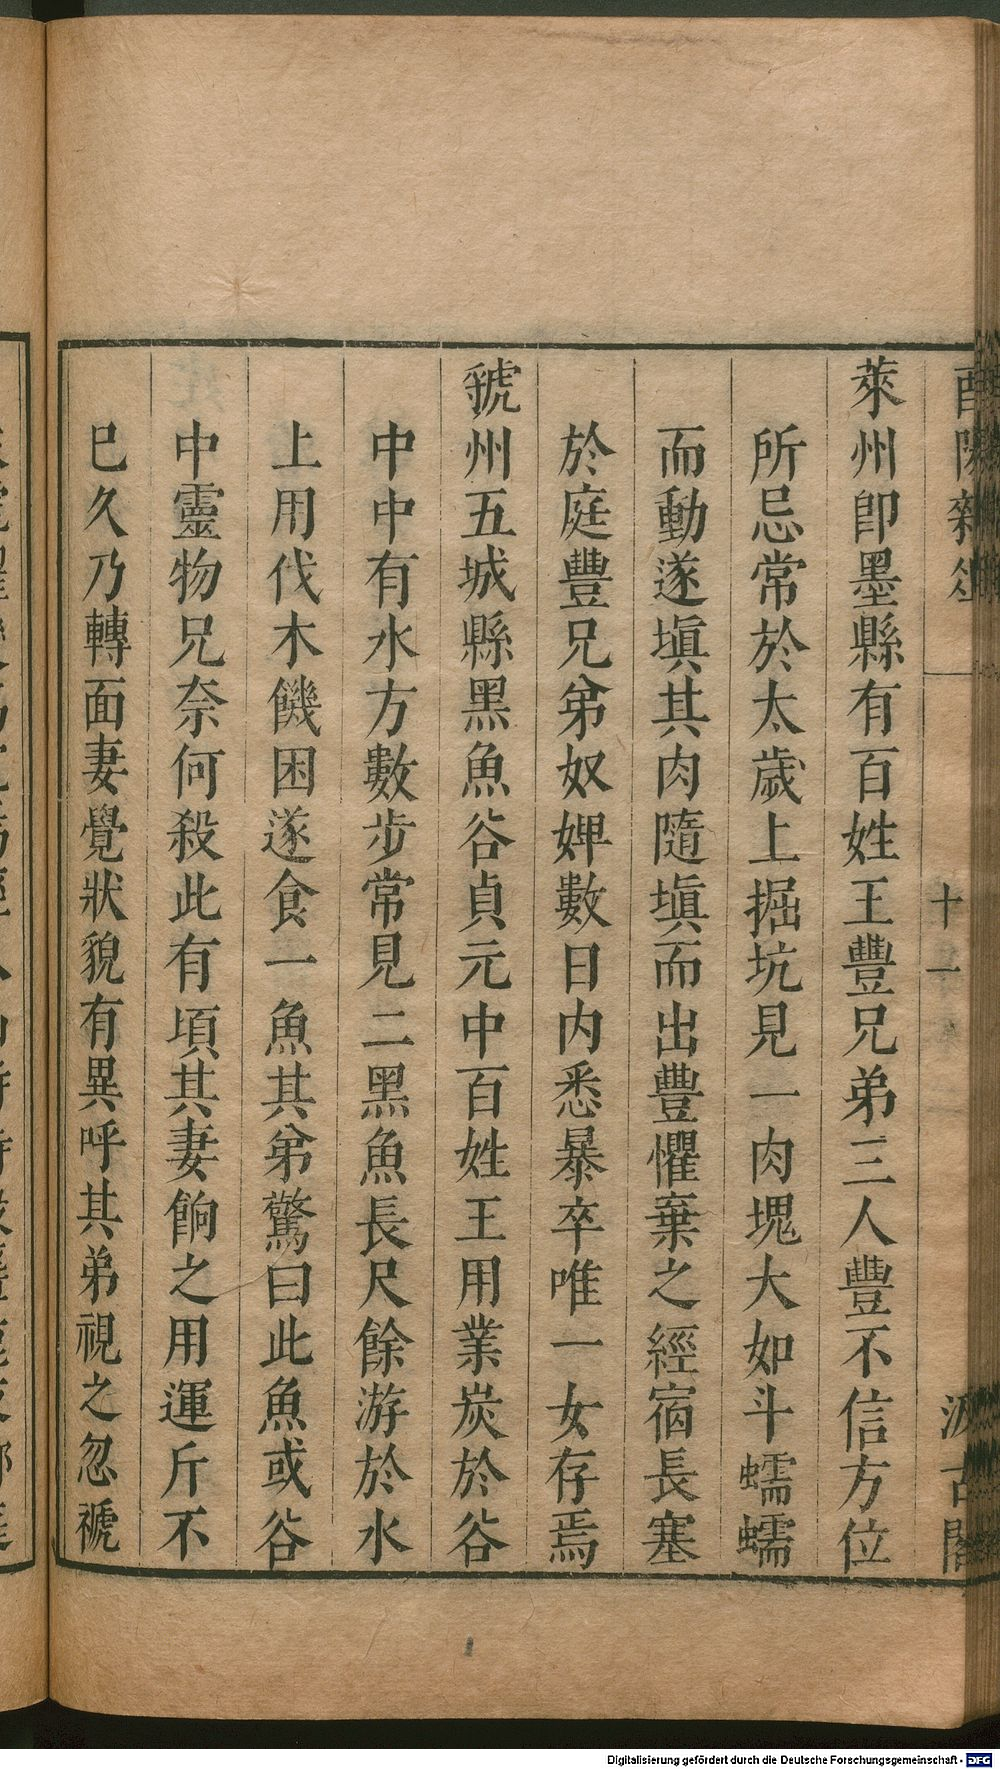 萊州卽墨縣有百姓王豐兄弟三人豐不信方位
所忌常於太歲上掘坑見一肉塊大如斗蠕蠕
而動遂塡其肉隨塡而出豐懼棄之經宿長塞
於庭豐兄弟奴婢數日內悉暴卒唯一女存焉
虢州五城縣黑魚谷貞元中百姓王用業炭於谷
中中有水方數步常見二黑魚長尺餘游於水
上用伐木饑困遂食一魚其弟驚曰此魚或谷
中靈物兄奈何殺此有頃其妻餉之用運斤不
巳久乃轉面妻覺狀貌有異呼其弟視之忽褫
酉陽雜俎
十一
汲古閣
Digitalisierung gefördert durch die Deutsche Forschungsgemeinschaft - DFG